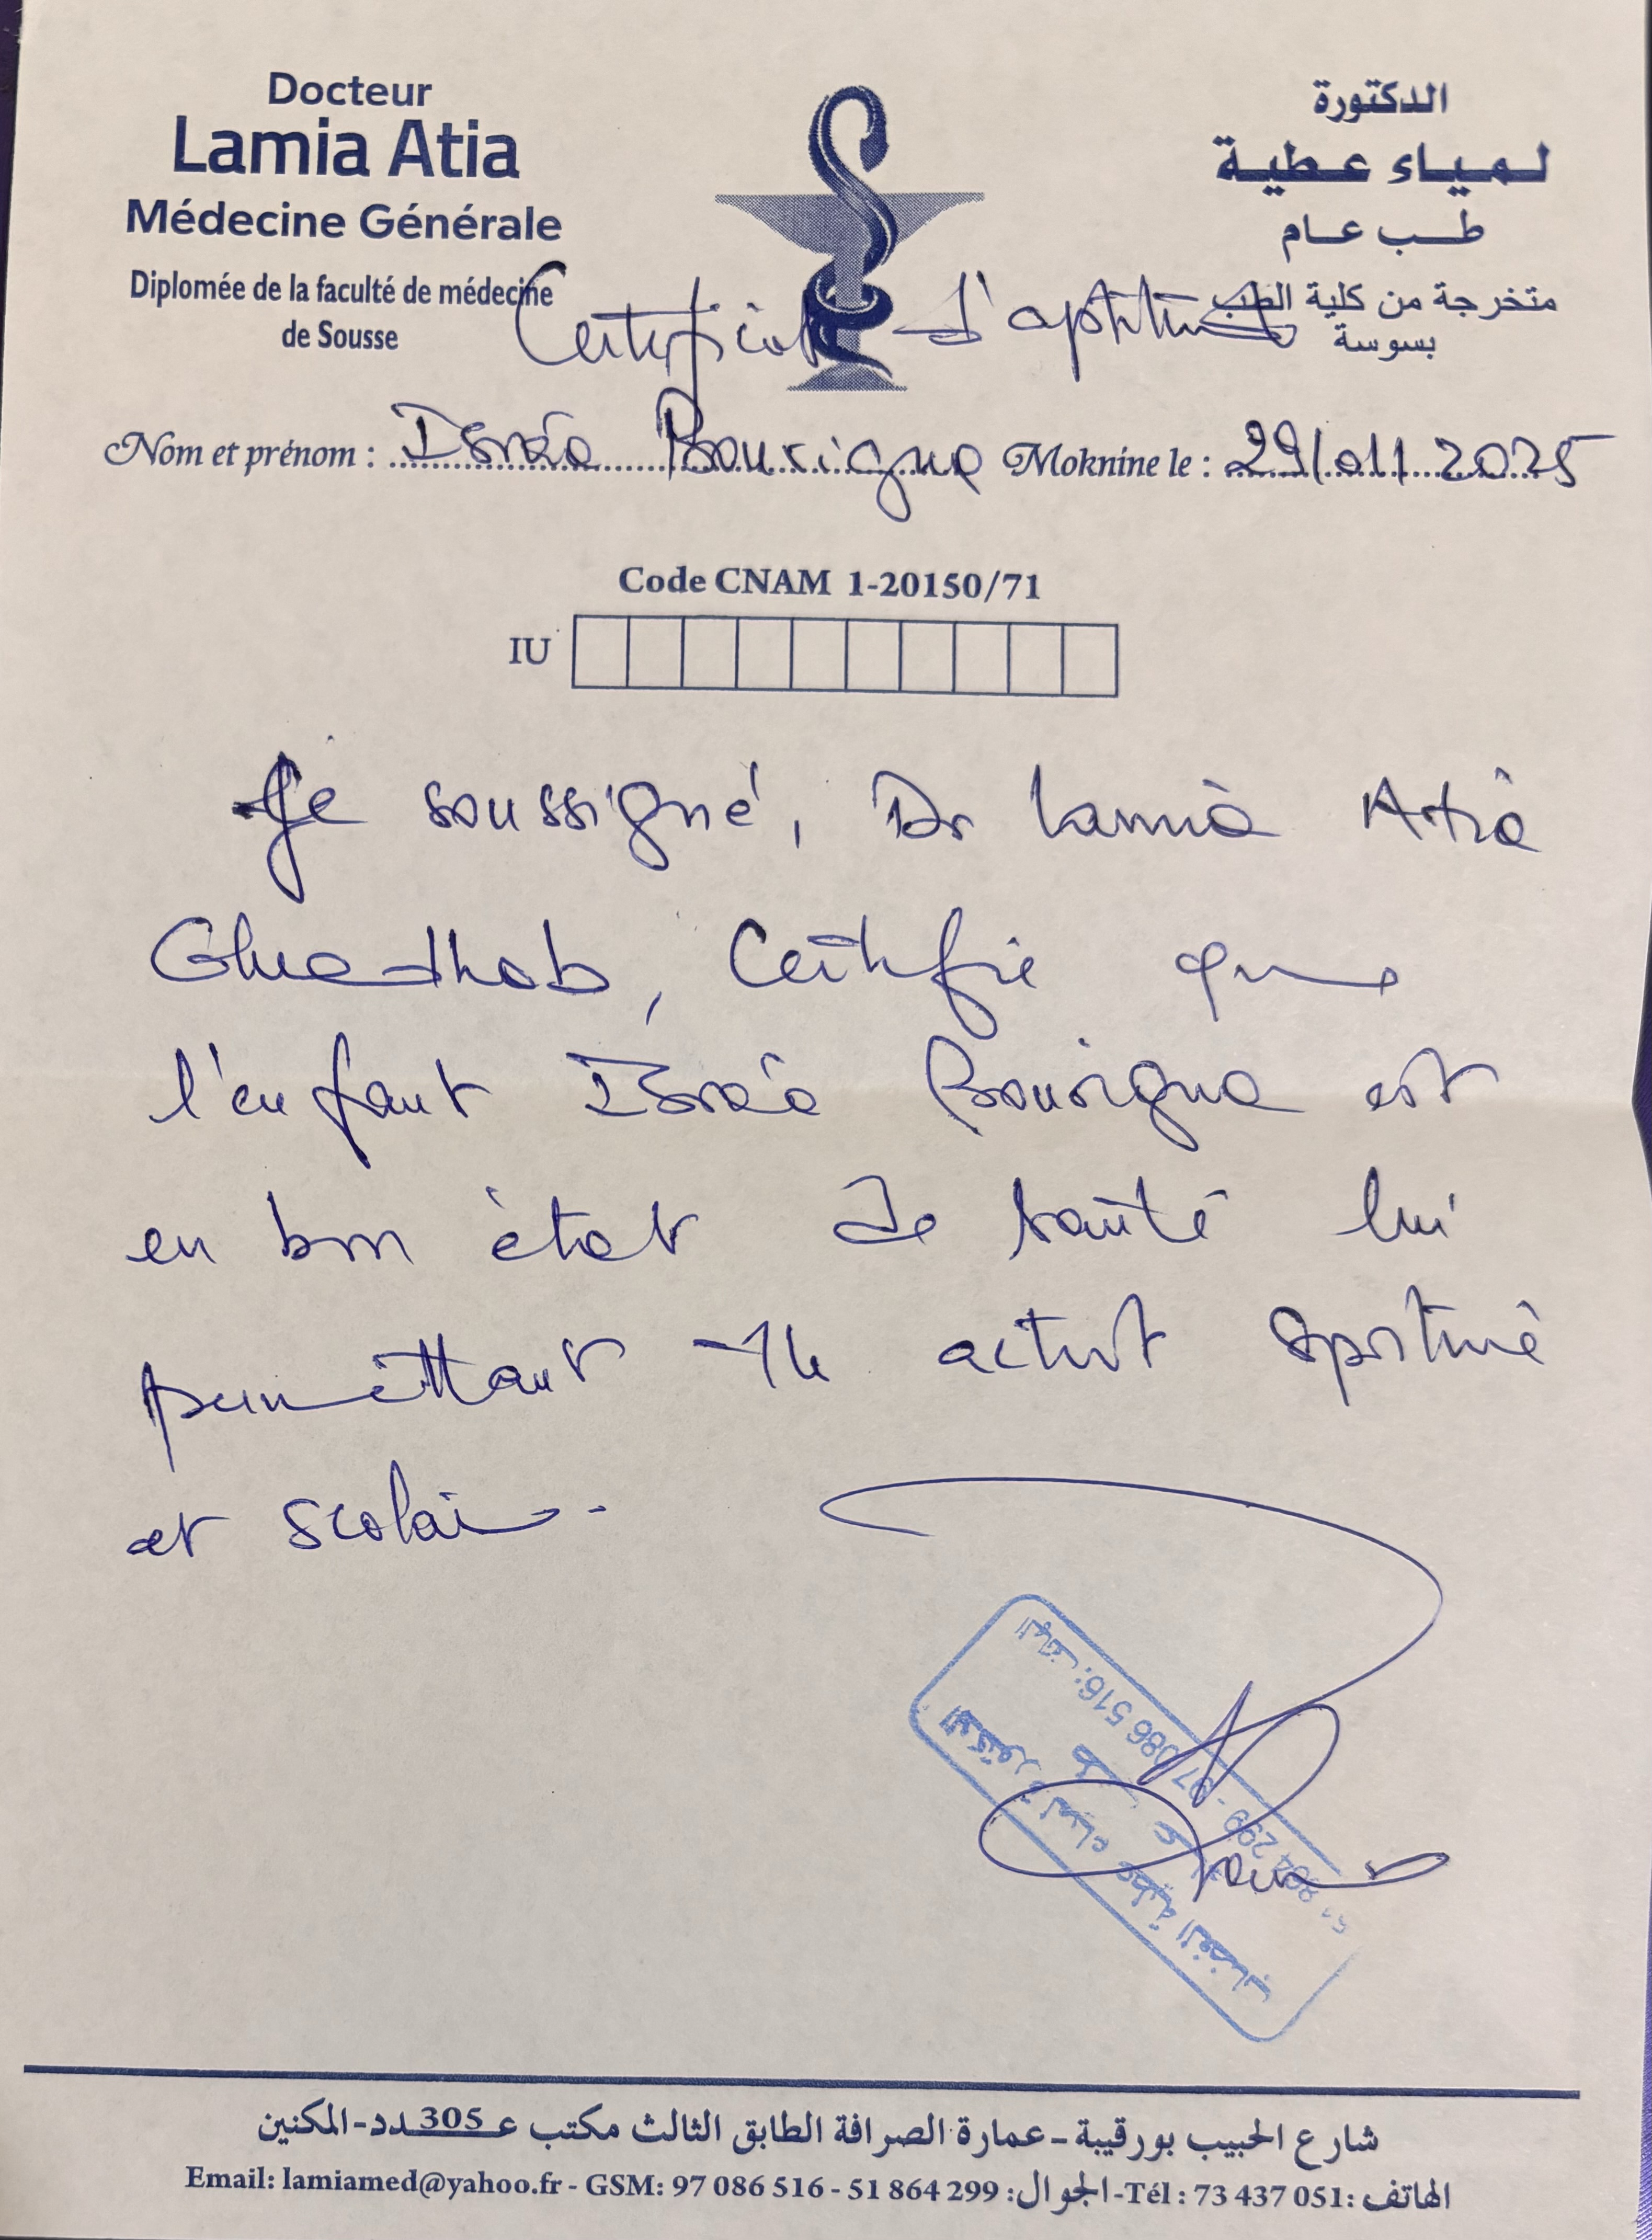 Docteur
Lamia Atia
Médecine Générale
Diplomée de la faculté de médecine
de Sousse
الدكتورة
لمياء عطية
طب عام
متخرجة من كلية الطب
بسوسة
Certificat d'aptitude
Nom et prénom : Israa Bourigua Moknine le : 29/01/2025
Code CNAM 1-20150/71
IU
Je soussigné, Dr Lamia Atia
Ghedhab, Certifie que
l'enfant Israa Bourigua est
en bon état de santé lui
permettant activt sportive
et scolaire.
الدكتورة لمياء عطية الغضاب
طب عام
الهاتف: 97 086 516 - 51 864 299
شارع الحبيب بورقيبة - عمارة الصرافة الطابق الثالث مكتب عـ305ـدد - المكنين
Email: lamiamed@yahoo.fr - GSM: 97 086 516 - 51 864 299 :الجوال - Tél : 73 437 051 :الهاتف